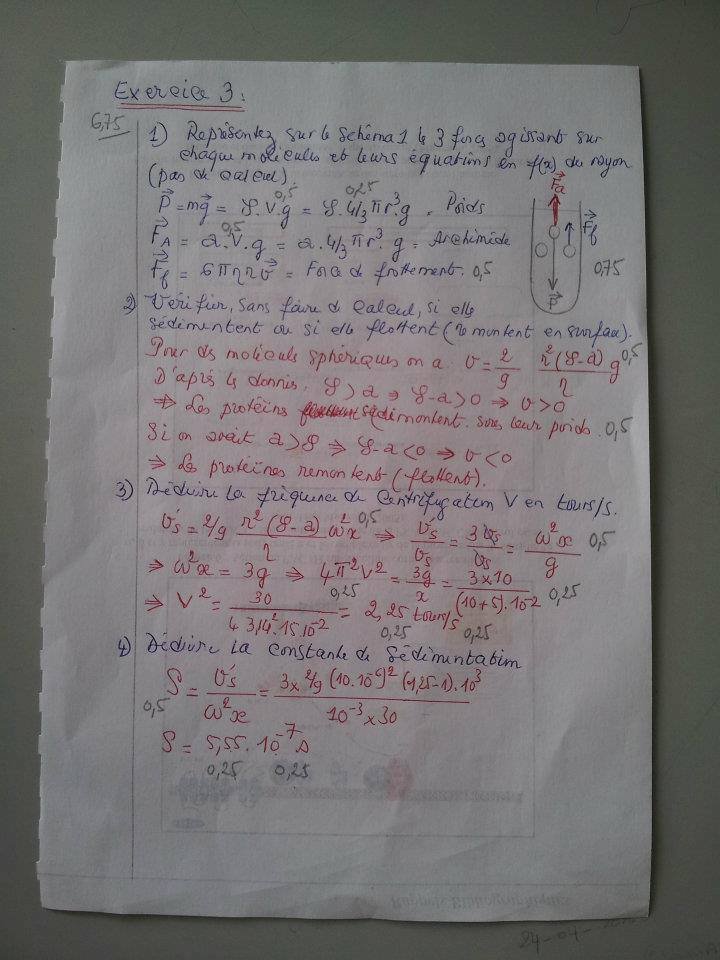 Exercice 3:
6,75
1) Représentez sur le schéma 1 le 3 forces agissant sur
chaque molécules et leurs équations en f(x) du rayon
(pas de calcul)
P = mg = ρ.V.g = ρ.4/3 πr³.g = Poids
0,5 0,25
F_A = a.V.g = a.4/3 πr³.g = Archimide
0,5
F_f = 6πηrv = Force de frottement. 0,5
Fa
Ff
P
0,75
2) Vérifier, sans faire de calcul, si elle
sédimentent ou si elle flottent (remontent en surface).
Pour des molécule sphériques on a: v = 2/9 r²(ρ-a)/η g 0,5
D'après le donnis: ρ > a ⇒ ρ-a > 0 ⇒ v > 0
⇒ Les protéins sédimentent sous leur poids. 0,5
Si on avait a > ρ ⇒ ρ-a < 0 ⇒ v < 0
⇒ Les protéines remontent (flottent).
3) Déduire la fréquence de centrifugation V en tours/s.
v's = 2/9 r²(ρ-a)/η ω²x 0,5 ⇒ v's/vs = 3vs/vs = ω²x/g 0,5
⇒ ω²x = 3g ⇒ 4π²V² = 3g/x = 3×10/(10+5).10-2 0,25
0,25
⇒ V² = 30/4.3,14².15.10-2 = 2,25 tours/s
0,25 0,25
4) Déduire la constante de sédimentation
S = v's/ω²x = 3×2/9 (10.10-6)² (1,25-1).10³/10-3 × 30
0,5
S = 5,55.10-7 s
0,25 0,25